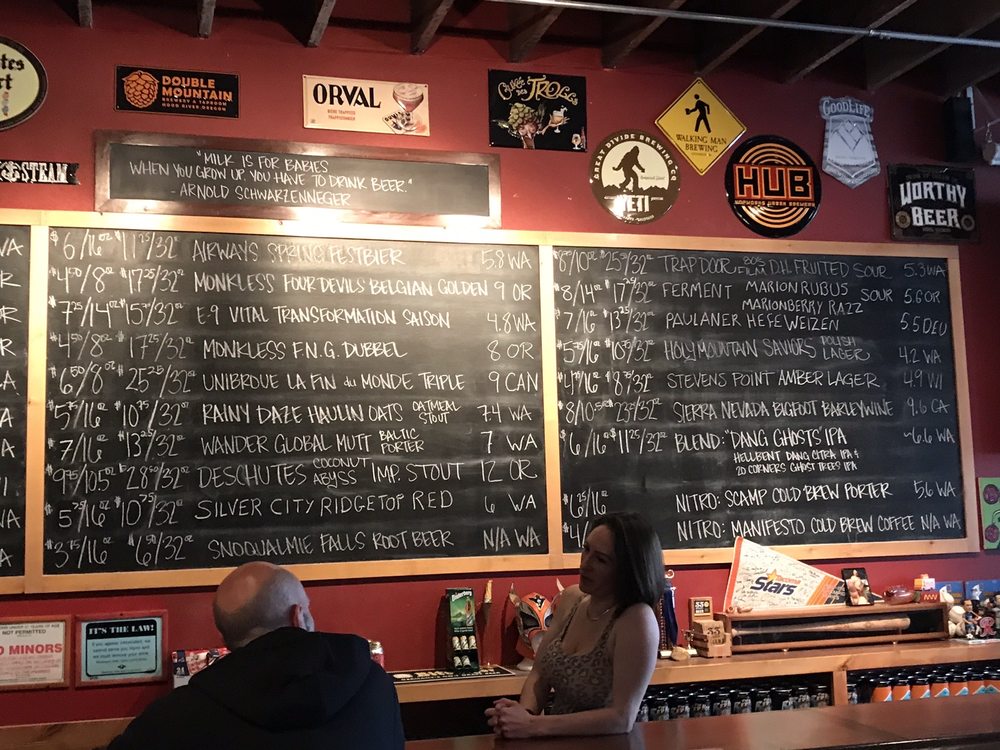 DOUBLE
MOUNTAIN
BREWERY & TAPROOM
HOOD RIVER, OREGON
ORVAL
Cuvée
des TROLLS
GREAT DIVIDE BREWING CO
YETI
WALKING MAN
BREWING
HUB
HOPWORKS URBAN BREWERY
GOODLIFE
WORTHY
BEER
STEAM
"MILK IS FOR BABIES
WHEN YOU GROW UP YOU HAVE TO DRINK BEER."
-ARNOLD SCHWARZENNEGER
$6/16oz $11 25/32oz AIRWAYS SPRING FESTBIER 5.8 WA
$4 50/8oz $17 25/32oz MONKLESS FOUR DEVILS BELGIAN GOLDEN 9 OR
$7 25/14oz $15 /32oz E-9 VITAL TRANSFORMATION SAISON 4.8 WA
$4 50/8oz $17 25/32oz MONKLESS F.N.G. DUBBEL 8 OR
$6 50/8oz $25 25/32oz UNIBROUE LA FIN du MONDE TRIPLE 9 CAN
$5 75/16oz $10 75/32oz RAINY DAZE HAULIN OATS OATMEAL STOUT 7.4 WA
$7/16oz $13 25/32oz WANDER GLOBAL MUTT BALTIC PORTER 7 WA
/10.5oz $28 50/32oz DESCHUTES COCONUT ABYSS IMP. STOUT 12 OR
$5 75/16oz $10 75/32oz SILVER CITY RIDGETOP RED 6 WA
$3 75/16oz $6 50/32oz SNOQUALMIE FALLS ROOT BEER N/A WA
$8/10oz $25 /32oz TRAP DOOR 80'S FILM D.H. FRUITED SOUR 5.3 WA
$8/14oz $17 25/32oz FERMENT MARIONRUBUS
MARIONBERRY RAZZ SOUR 5.6 OR
$7/16oz $13 25/32oz PAULANER HEFEWEIZEN 5.5 DEU
$5 75/16oz $10 75/32oz HOLY MOUNTAIN SAVIORS POLISH LAGER 4.2 WA
$4 /16oz $8 75/32oz STEVENS POINT AMBER LAGER 4.9 WI
$8/10.5oz $23 /32oz SIERRA NEVADA BIGFOOT BARLEYWINE 9.6 CA
$6/16oz $11 25/32oz BLEND: "DANG GHOSTS" IPA ~6.6 WA
HELLBENT DANG CITRA IPA &
20 CORNERS GHOST TREES IPA
$6 25/16oz NITRO: SCAMP COLD BREW PORTER 5.6 WA
$4/ NITRO: MANIFESTO COLD BREW COFFEE N/A WA
NOT PERMITTED
NO MINORS
IT'S THE LAW!
Stars
35